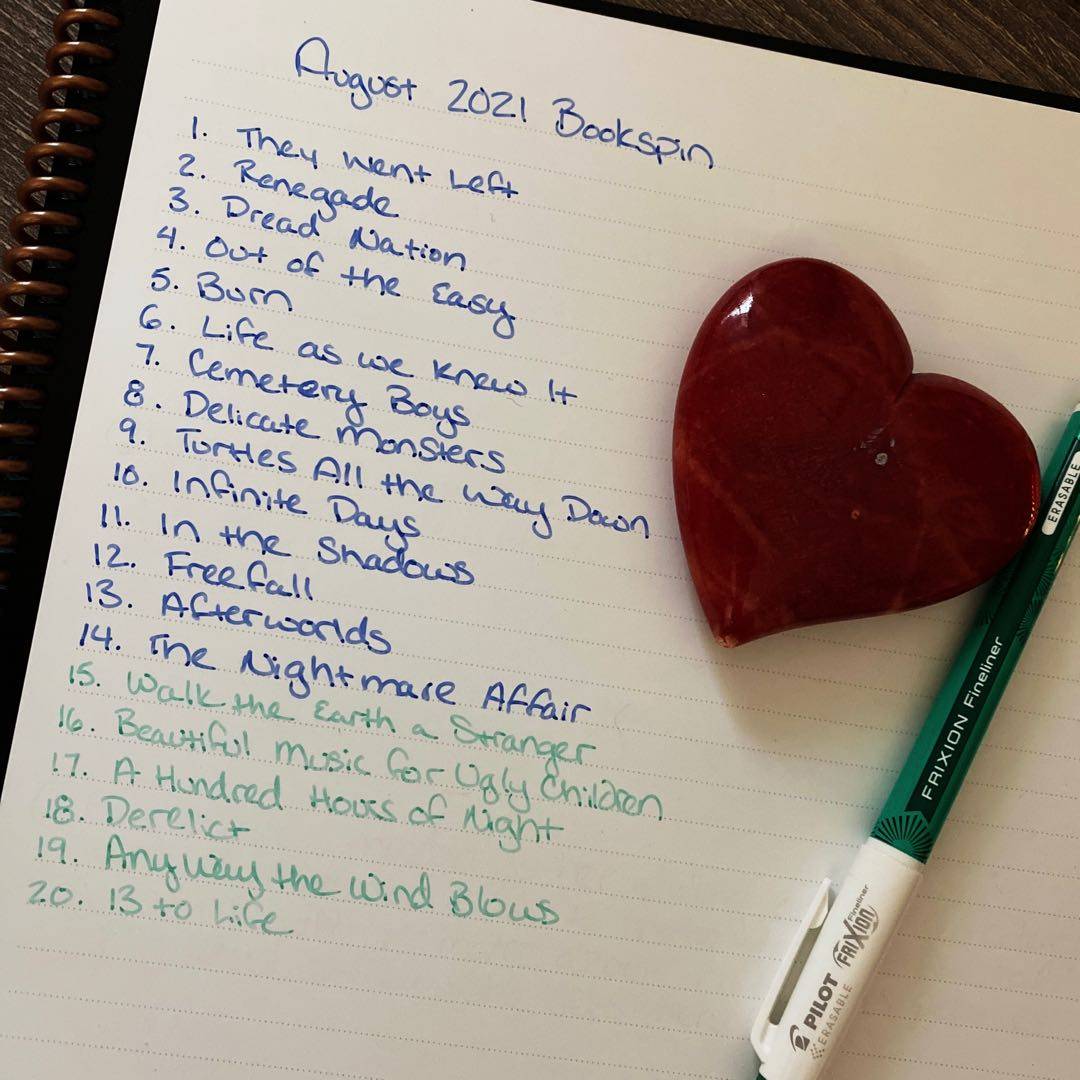 August 2021 Bookspin
1. They Went Left
2. Renegade
3. Dread Nation
4. Out of the Easy
5. Burn
6. Life as we Knew It
7. Cemetery Boys
8. Delicate Monsters
9. Turtles All the Way Down
10. Infinite Days
11. In the Shadows
12. Freefall
13. Afterworlds
14. The Nightmare Affair
15. Walk the Earth a Stranger
16. Beautiful Music for Ugly Children
17. A Hundred Hours of Night
18. Derelict
19. Any Way the Wind Blows
20. 13 to Life
ERASABLE
FRIXION Fineliner
Fineliner
FRIXION
PILOT
ERASABLE